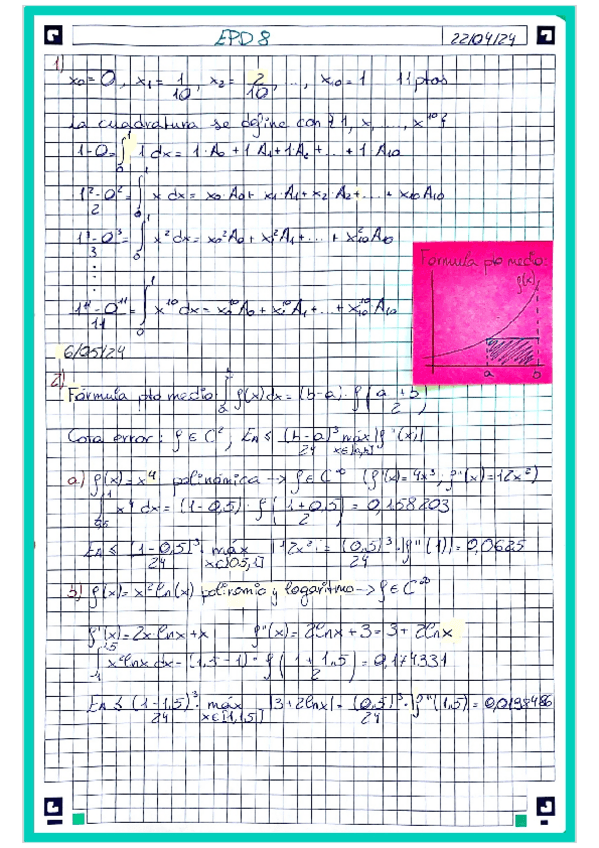 EPD 8
22/04/24
1)
x₀ = 0, x₁ = 1/10, x₂ = 2/10, ..., x₁₀ = 1 11 ptos
La cuadratura se define con {1, x, ..., x¹⁰}
1-0 = ∫₀¹ 1 dx = 1·A₀ + 1·A₁ + 1·A₂ + ... + 1·A₁₀
(1²-0²)/2 = ∫₀¹ x dx = x₀A₀ + x₁·A₁ + x₂·A₂ + ... + x₁₀A₁₀
(1³-0³)/3 = ∫₀¹ x² dx = x₀²A₀ + x₁²A₁ + ... + x₁₀²A₁₀
(1¹¹-0¹¹)/11 = ∫₀¹ x¹⁰ dx = x₀¹⁰A₀ + x₁¹⁰A₁ + ... + x₁₀¹⁰A₁₀
Fórmula pto medio
f(x)
a b
6/05/24
2)
Fórmula pto medio: ∫ f(x)dx = (b-a)· f((a+b)/2)
Cota error: f ∈ C², Eₙ ≤ (b-a)³/24 máx x∈[a,b] |f''(x)|
a) f(x) = x⁴ polinómica -> f ∈ C^∞ (f'(x) = 4x³; f''(x) = 12x²)
∫₀,₅¹ x⁴ dx = (1-0,5) · f((1+0,5)/2) = 0,158203
Eₙ ≤ (1-0,5)³/24 · máx x∈[0,5,1] |12x²| = (0,5)³/24 · |f''(1)| = 0,0625
b) f(x) = x² ln(x) polinomio y logaritmo -> f ∈ C^∞
f'(x) = 2x·lnx + x f''(x) = 2lnx + 3 = 3 + 2lnx
∫₁^1,5 x² lnx dx = (1,5-1) · f((1+1,5)/2) = 0,174331
Eₙ ≤ (1-1,5)³/24 · máx x∈[1,1,5] |3+2lnx| = (0,5)³/24 · |f''(1,5)| = 0,0198486